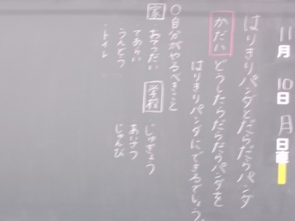 11月10日月
日直
はりきりパンダとだらだらパンダ
かだい どうしたらだらだらパンダを
はりきりパンダにできるでしょう。
○自分がやるべきこと
家 おてつだい
てあらい
うんどう
・トイレ
学校 じゅぎょう
あいさつ
じゅんび